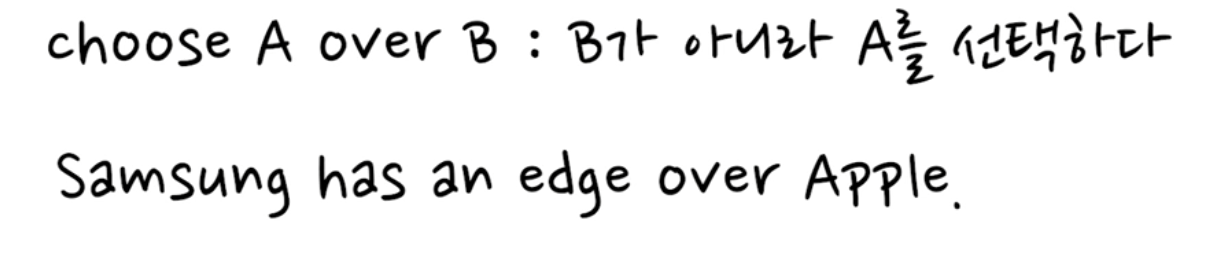 choose A over B : B가 아니라 A를 선택하다
Samsung has an edge over Apple.